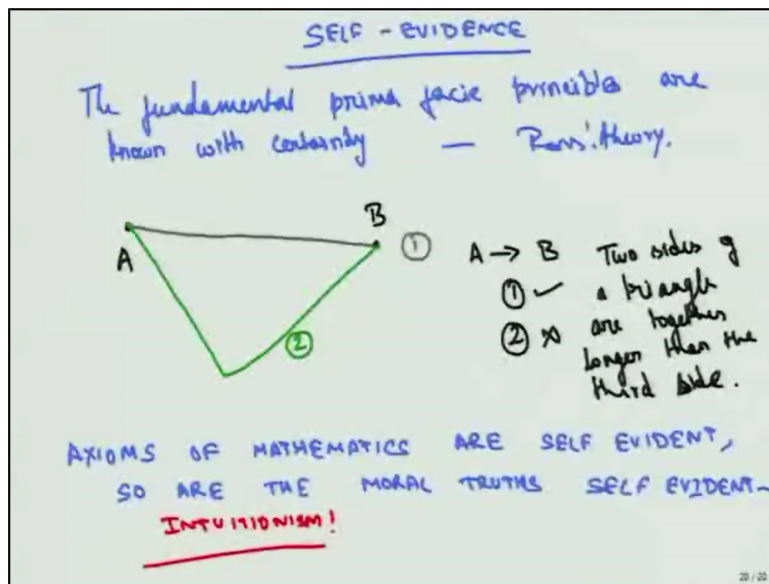 SELF - EVIDENCE
The fundamental prima facie principles are
known with certainty — Ross' theory.
A
B
①
②
A → B Two sides of
① ✓ a triangle
② × are together
longer than the
third side.
AXIOMS OF MATHEMATICS ARE SELF EVIDENT,
SO ARE THE MORAL TRUTHS SELF EVIDENT-
INTUITIONISM!
20/20